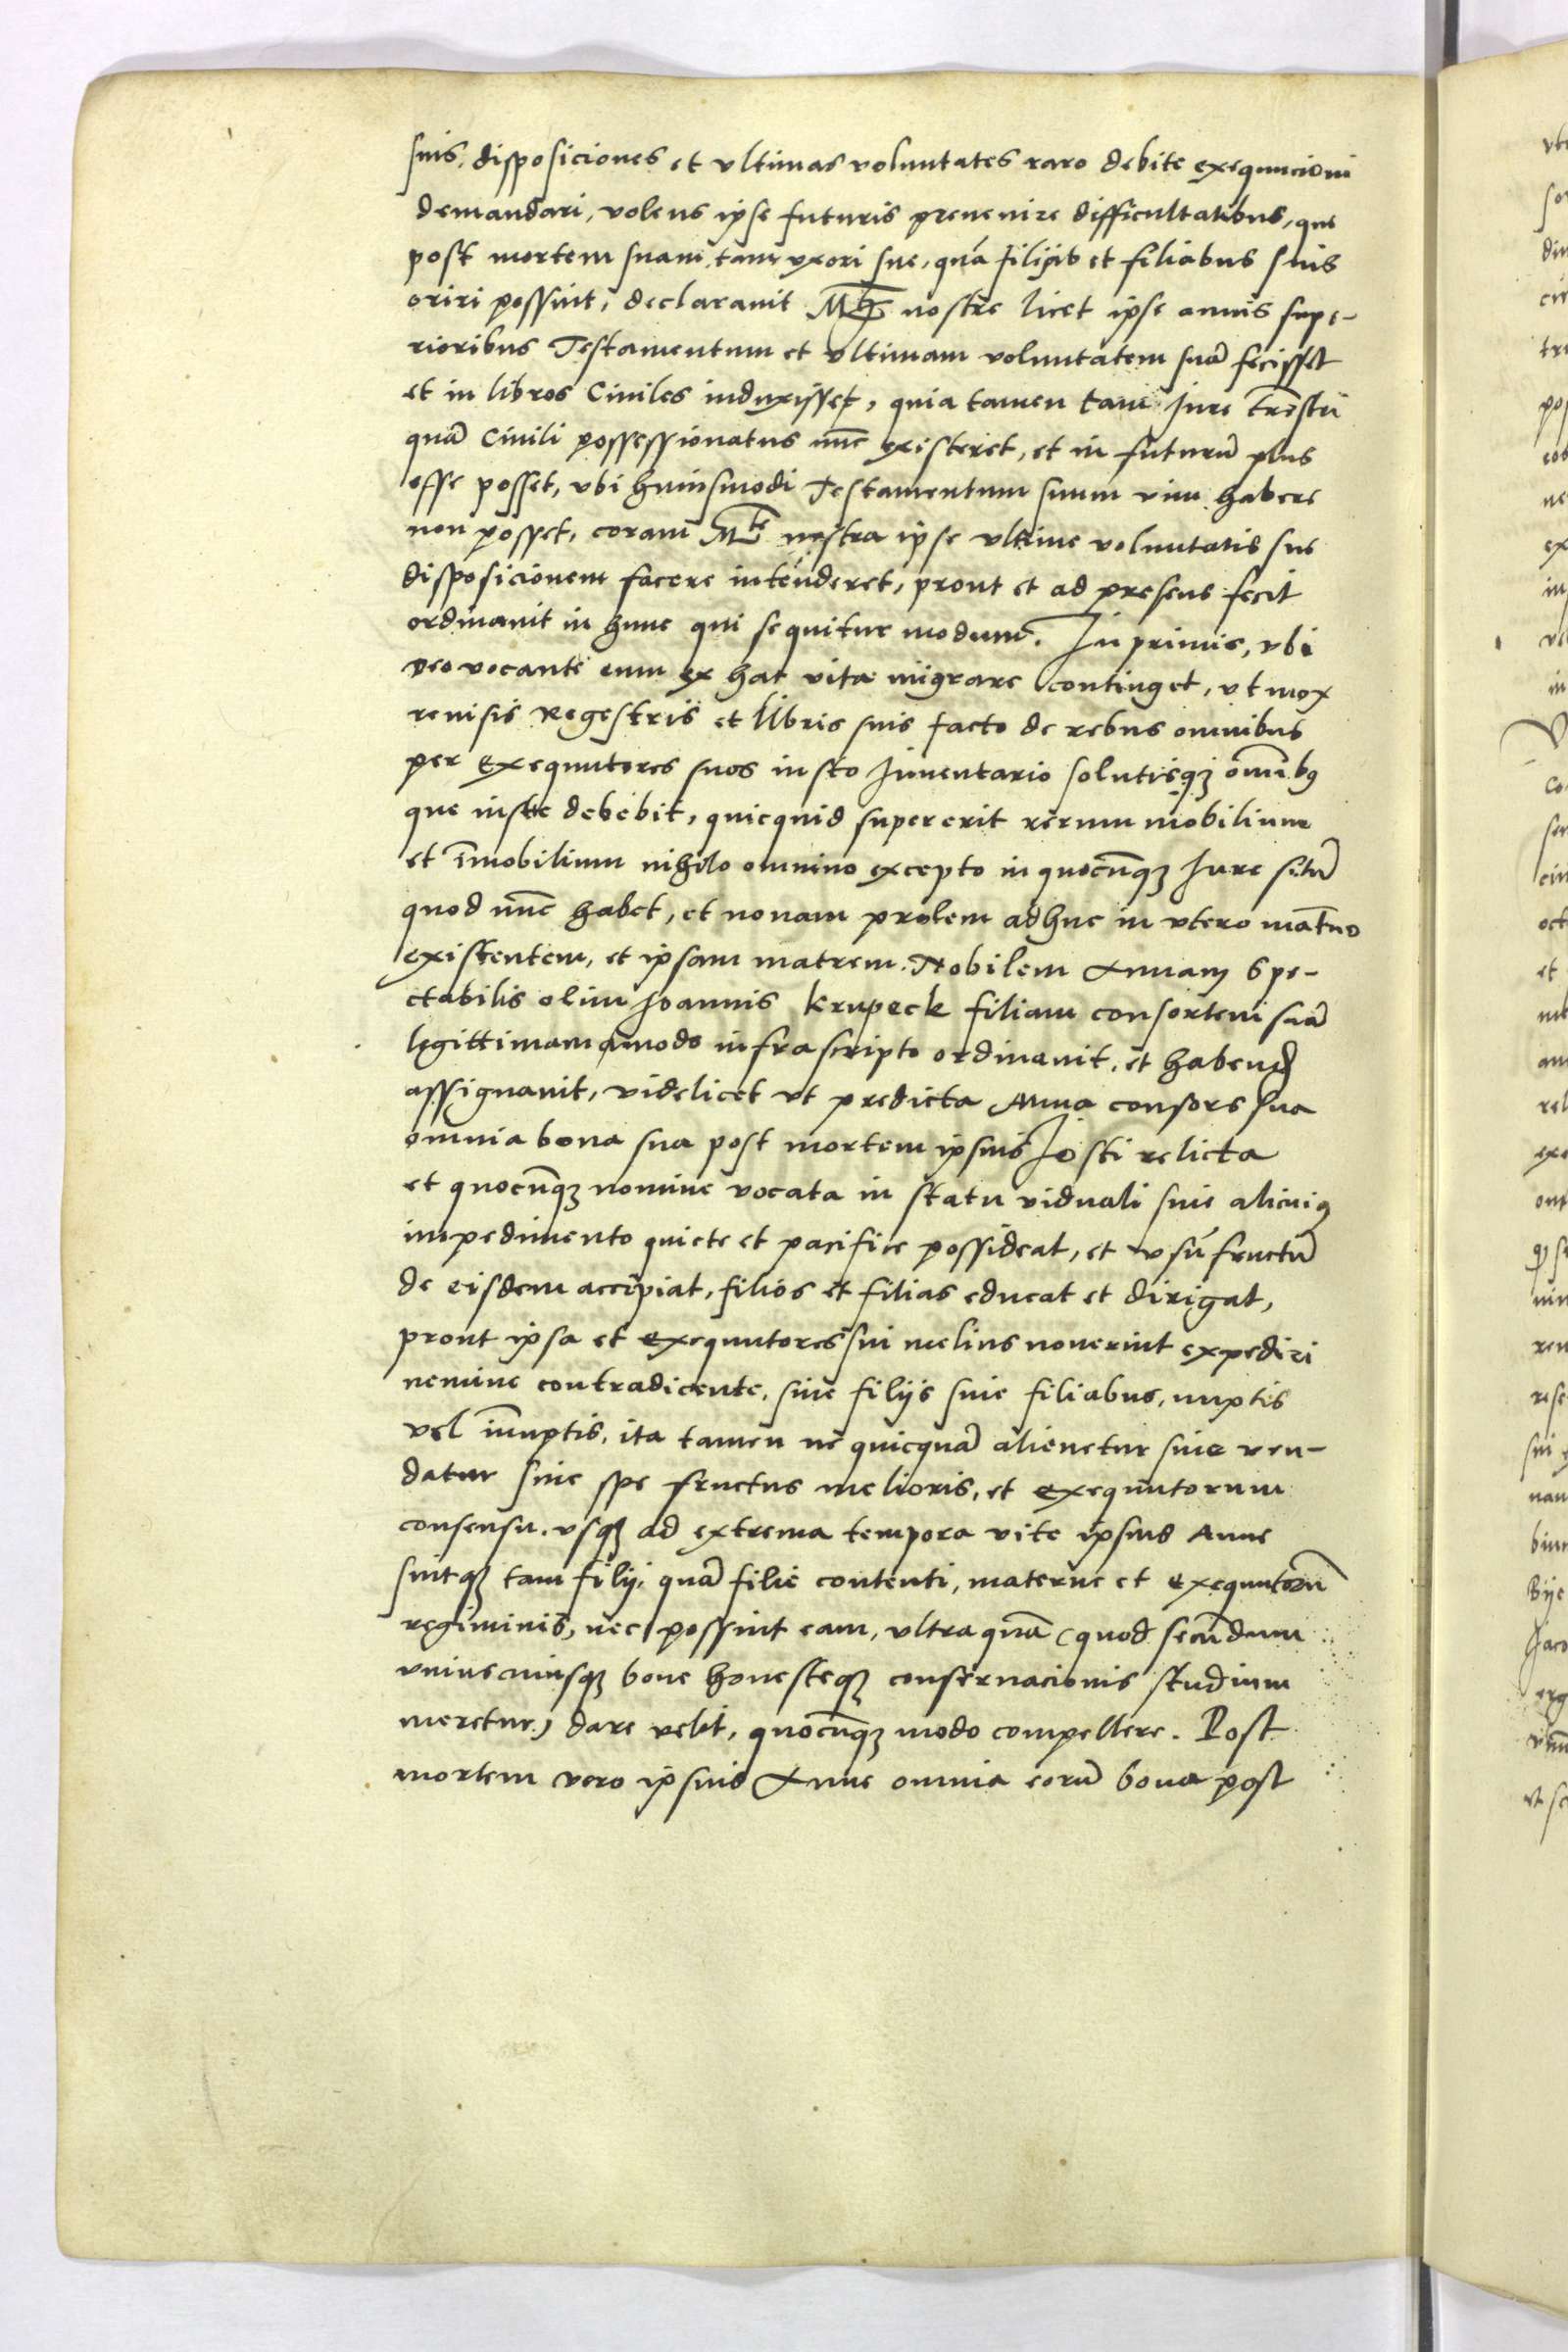 suis, disposiciones et vltimas voluntates raro debite exequucioni
demandari, volens ipse futuris preuenire difficultatibus, que
post mortem suam, tam vxori sue, quã filijs et filiabus suis
oriri possint, declarauit nostre licet ipse annis supe-
rioribus Testamentum et vltimam voluntatem suã fecisset
et in libros Ciuiles induxisset, quia tamen tam Jure trẽstri
quã Ciuili possessionatus nũc existeret, et in futurũ plus
esse posset, vbi huiusmodi Testamentum suum vim habere
non posset, coram M^te nostra ipse vltime voluntatis sue
disposicionem facere intenderet, prout et ad presens fecit
ordinauit in hunc qui sequitur modum. In primis, vbi
deo vocante eum ex hac vita migrare continget, vt mox
reuisis Regestris et libris suis facto de rebus omnibus
per exequutores suos iusto Inuentario solutisqȝ om̃ibꝯ
que iuste debebit, quicquid supererit rerum mobilium
et ĩmobilium nihilo omnino excepto in quocũqȝ Jure sitũ
quod nũc habet, et nouam prolem adhuc in vtero mat̃no
existentem, et ipsam matrem. Nobilem Annam Spe-
ctabilis olim Joannis Krupeck filiam consortem suã
legittimam modo infrascripto ordinauit, et habend
assignauit, videlicet vt predicta Anna consors sua
omnia bona sua post mortem ipsius Josti relicta
et quocũqȝ nomine vocata in statu viduali sine alicuiꝯ
impedimento quiete et pacifice possideat, et vsũfructũ
de eisdem accipiat, filios et filias educat et dirigat,
prout ipsa et exequutores sui melius nouerint expediri
nemine contradicente, siue filijs siue filiabus, nuptis
vel ĩnuptis, ita tamen ne quicquã alienetur siue ven-
datur sine spe fructus melioris, et exequutorum
consensu. vsqȝ ad extrema tempora vite ipsius Anne
sintqȝ tam filij, quã filie contenti, materne et exequutorũ
regiminis, nec possint eam, vltra quã (quod secundum
vniuscuiusqȝ bone honesteqȝ conseruacionis studium
meretur) dare velit, quocũqȝ modo compellere. Post
mortem vero ipsius Anne omnia eorũ bona post